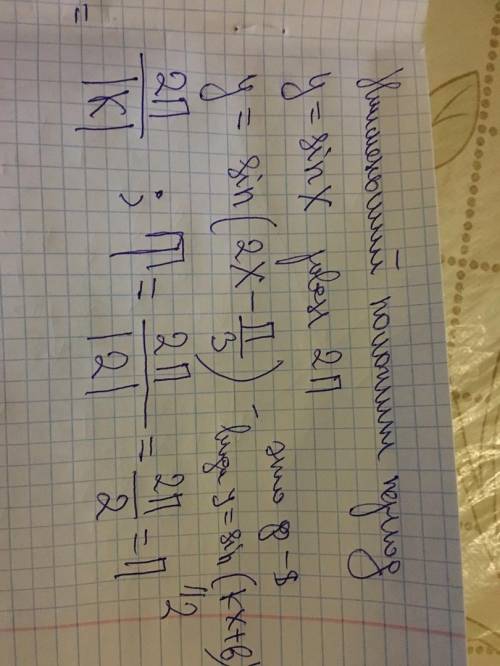 наименьший положит период
y = sin x равен 2π
y = sin(2x - π/3) - это ф-я
вида y = sin(kx+b)
"2
= 2π/|k| ; П = 2π/|2| = 2π/2 = π